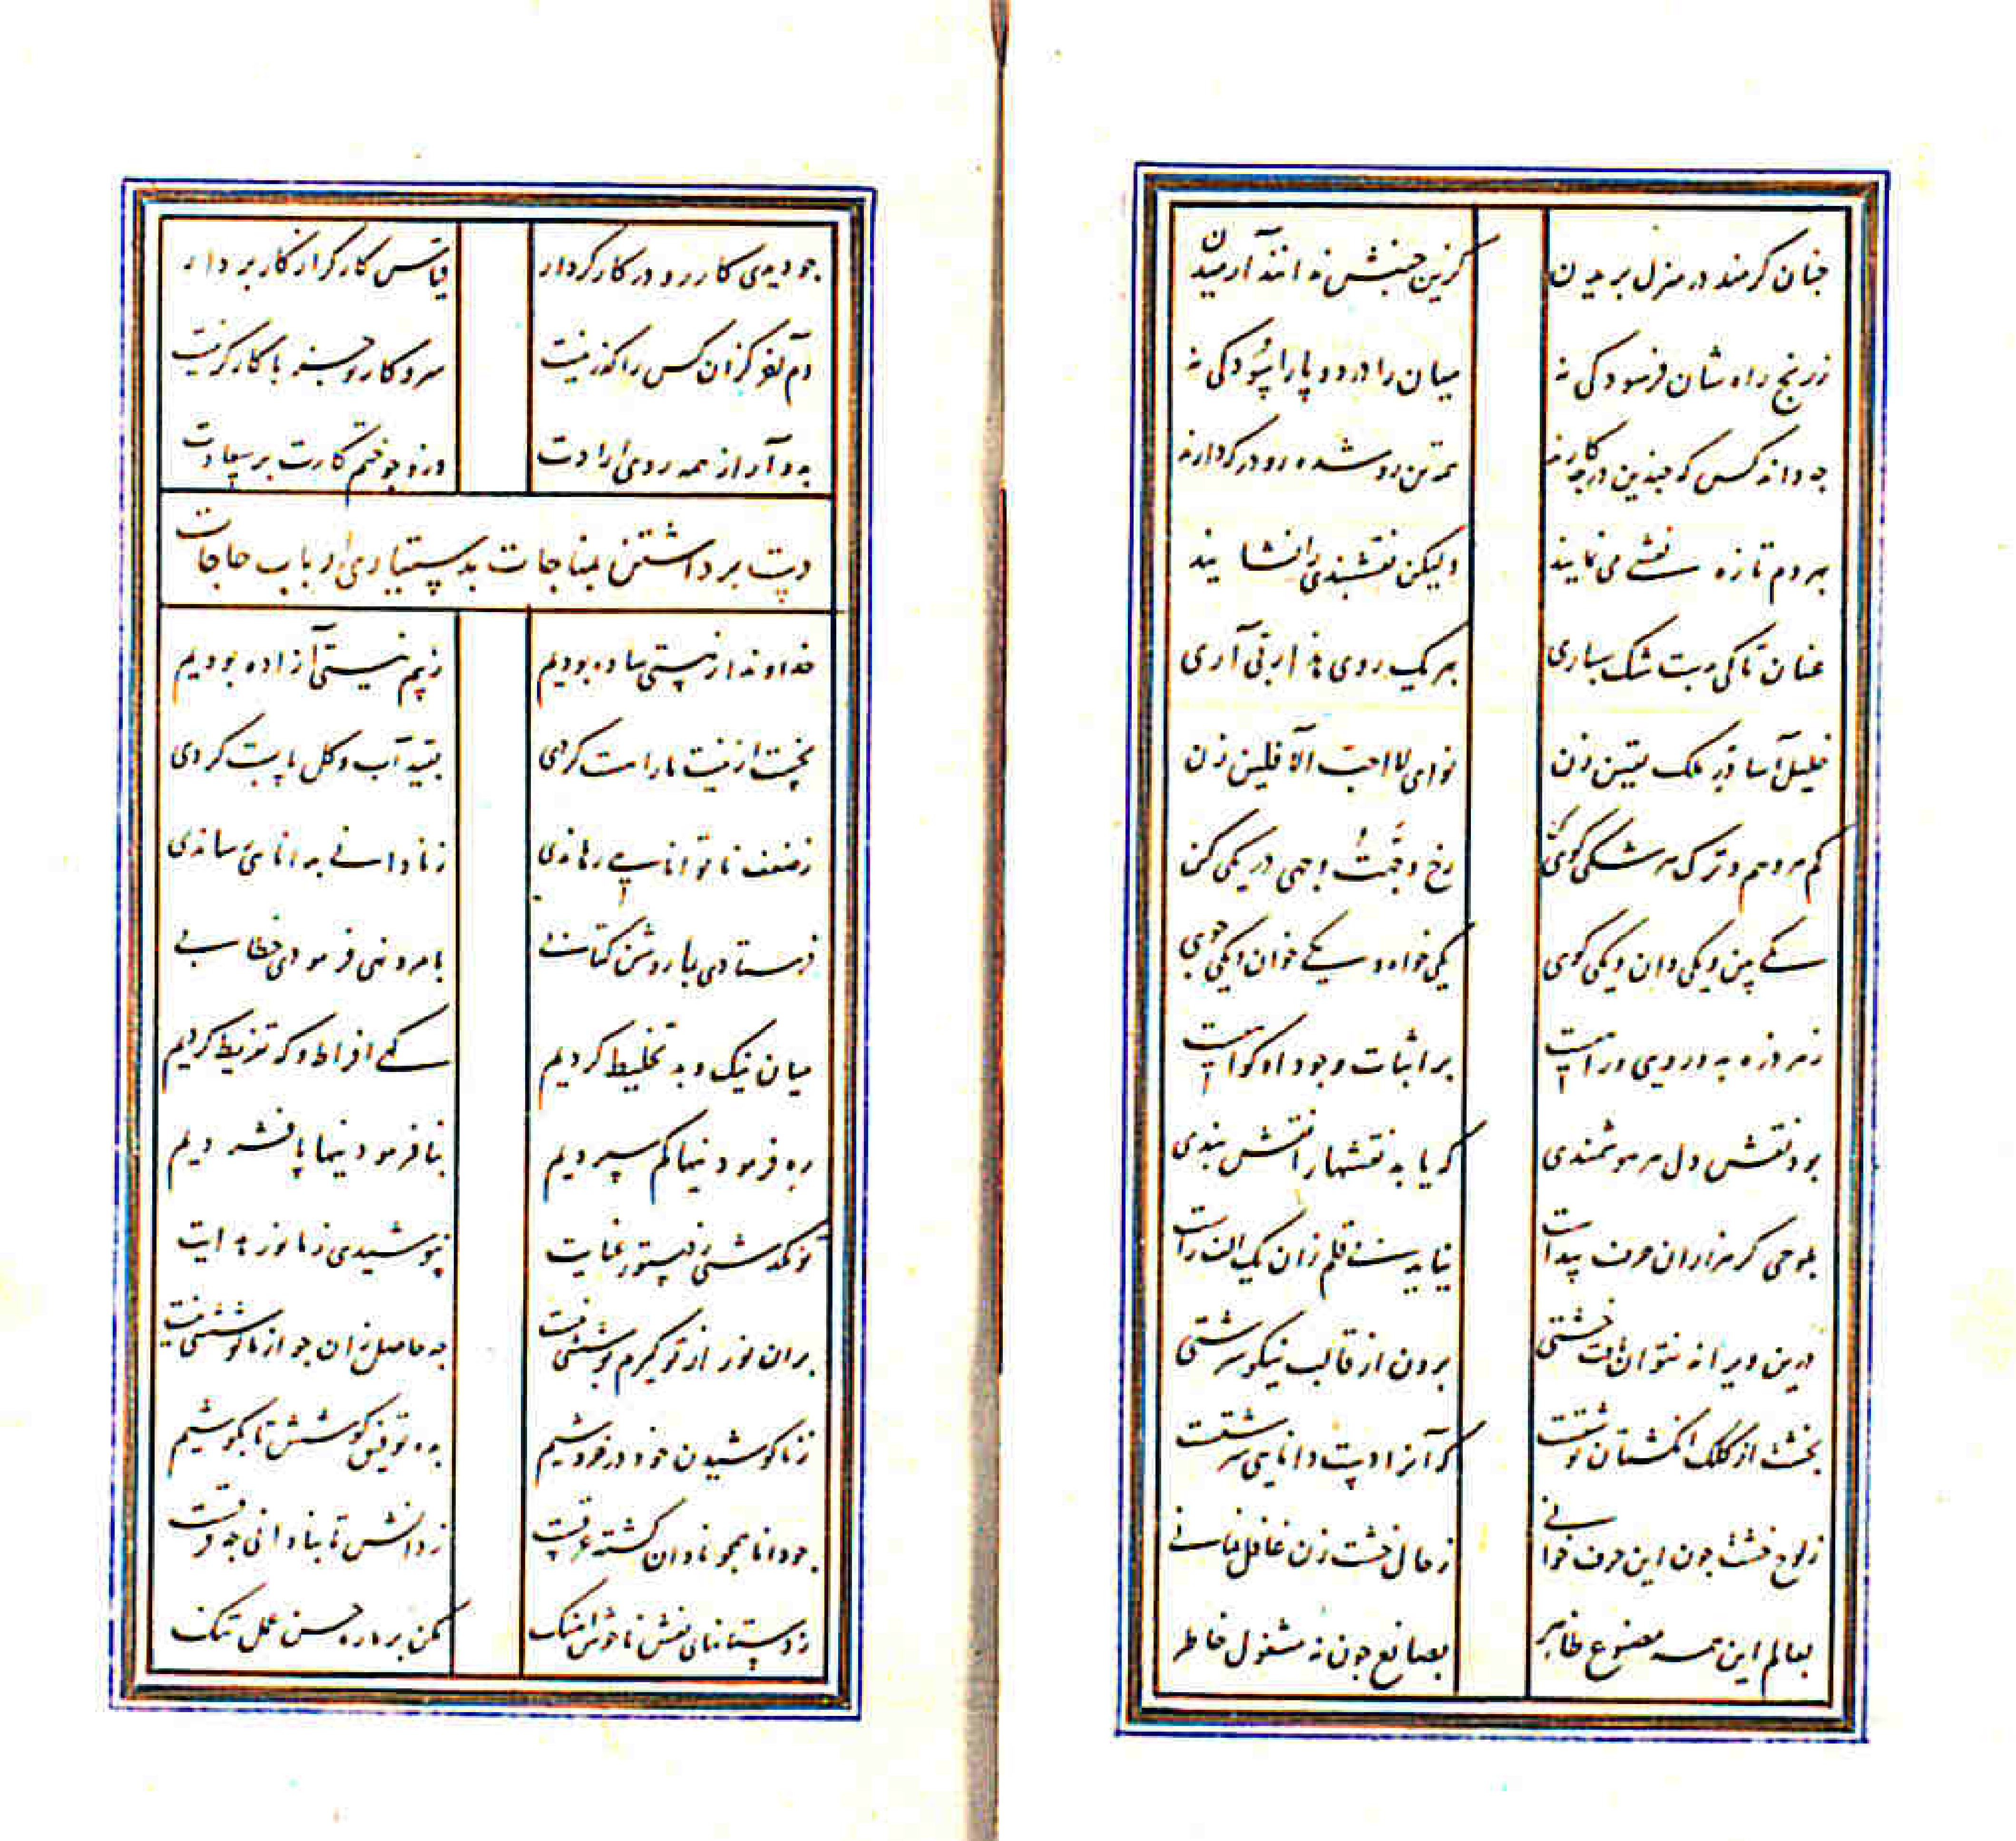 چنان گرمند در منزل بریدن کزین جنبش ندانند آرمیدن
ز رنج راه شان فرسودگی نه میان را درد و پا را سودگی نه
چه داند کس که چندین در چه کارند همه تن رو شده رو در که دارند
بهر دم تازه نقشی می نمایند ولیکن نقشبندی را نشایند
عنان تا کی بدست شک سپاری بهر یک روی هذا ربی آری
خلیل آسا در ملک یقین زن نوای لا احب الآفلین زن
کم هر وهم و ترک هر شکی کن رخ وجهت وجهی در یکی کن
یکی بین و یکی دان و یکی گوی یکی خواه و یکی خوان و یکی جوی
ز هر ذره بدو رویی و راهیست بر اثبات وجود او گواهیست
بود نقش دل هر هوشمندی که باید نقشها را نقش بندی
بلوحی گر هزاران حرف پیداست نیاید بی قلم زان یک الف راست
درین ویرانه نتوان یافت خشتی برون از قالب نیکو سرشتی
بخشت از کلک انگشتان نوشتست که آنرا دست دانایی سرشتست
ز لوح خشت چون این حرف خوانی ز حال خشت زن غافل نمانی
بعالم این همه مصنوع ظاهر بصانع چون نه مشغول خاطر
چو دیدی کار رو در کارگر دار قیاس کارگر از کار بردار
دم آخر کزان کس را گذر نیست سر و کار تو جز با کارگر نیست
بدو آر از همه روی ارادت وزو جو ختم کارت بر سعادت
دست برداشتن بمناجات بدستیاری ارباب حاجات
خداوندا ز هستی ساده بودیم ز بیم نیستی آزاده بودیم
نخست از نیست ما را هست کردی بقید آب و گل پا بست کردی
ز ضعف ناتوانایی رهاندی ز نادانی بدانایی رساندی
فرستادی بما روشن کتابی بامر و نهی فرمودی خطابی
میان نیک و بد تخلیط کردیم گهی افراط و گه تفریط کردیم
ره فرمودنیها کم سپردیم بنافرمودنیها پا فشردیم
تو نگذشتی ز دستور عنایت نپوشیدی ز ما نور هدایت
بر آن نور از تو گیرم پوششی نیست چه حاصل زان چو از ما کوششی نیست
ز ناکوشیدن خود در خروشیم بده توفیق کوشش تا بکوشیم
چو دانا همچو نادان گشته غرقست ز دانش تا بنادانی چه فرقست
ز دستانهای نفس ناخوش آهنگ مکن بر ما ره حسن عمل تنگ